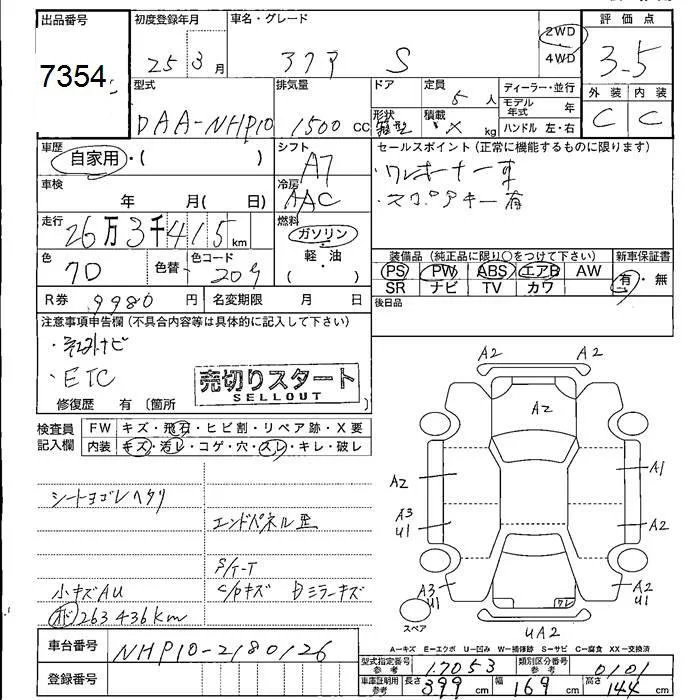 出品番号
7354
初度登録年月
25年3月
車名・グレード
アクア S
2WD
4WD
評価点
3.5
外装 内装
C C
型式
DAA-NHP10
排気量
1500 CC
ドア
形状 箱型
定員
5 人
積載
X kg
ディーラー・並行
モデル年式 年
ハンドル 左・右
車歴
自家用・( )
シフト
AT
セールスポイント (正常に機能するものに限ります)
・ワンオーナー車
・スペアキー有
車検
年 月( 日)
冷房
AAC
走行
26万3千415km
燃料
ガソリン
軽・油
( )
色
黒
色替
色コード
209
装備品 (純正品に限り○をつけて下さい)
PS PW ABS エアB AW
SR ナビ TV カワ
新車保証書
有・無
R券 9980円
名変期限 月 日
後日品
注意事項申告欄 (不具合内容等は具体的に記入して下さい)
・社外ナビ
・ETC
売切りスタート
SELLOUT
修復歴 有 〔箇所
検査員記入欄
FW キズ・飛石・ヒビ割・リペア跡・X要
内装 キズ・汚レ・コゲ・穴・スレ・キレ・破レ
シートヨゴレヘタリ
エンドパネル歪
S/T-T
小キズAU
C/Pキズ
ミラーキズ
263436km
A2 A2
A2
A2 A1
A3 U1 A2
A3 U1 A2 U1
UA2
スペア
A-キズ E-エクボ U-凹み W-補修跡 S-サビ C-腐食 XX-交換済
車台番号
NHP10-2180126
登録番号
型式指定番号 参考
17053
類別区分番号 参考
0101
車庫証明用 参考
長さ 399 cm 幅 169 cm 高さ 144 cm